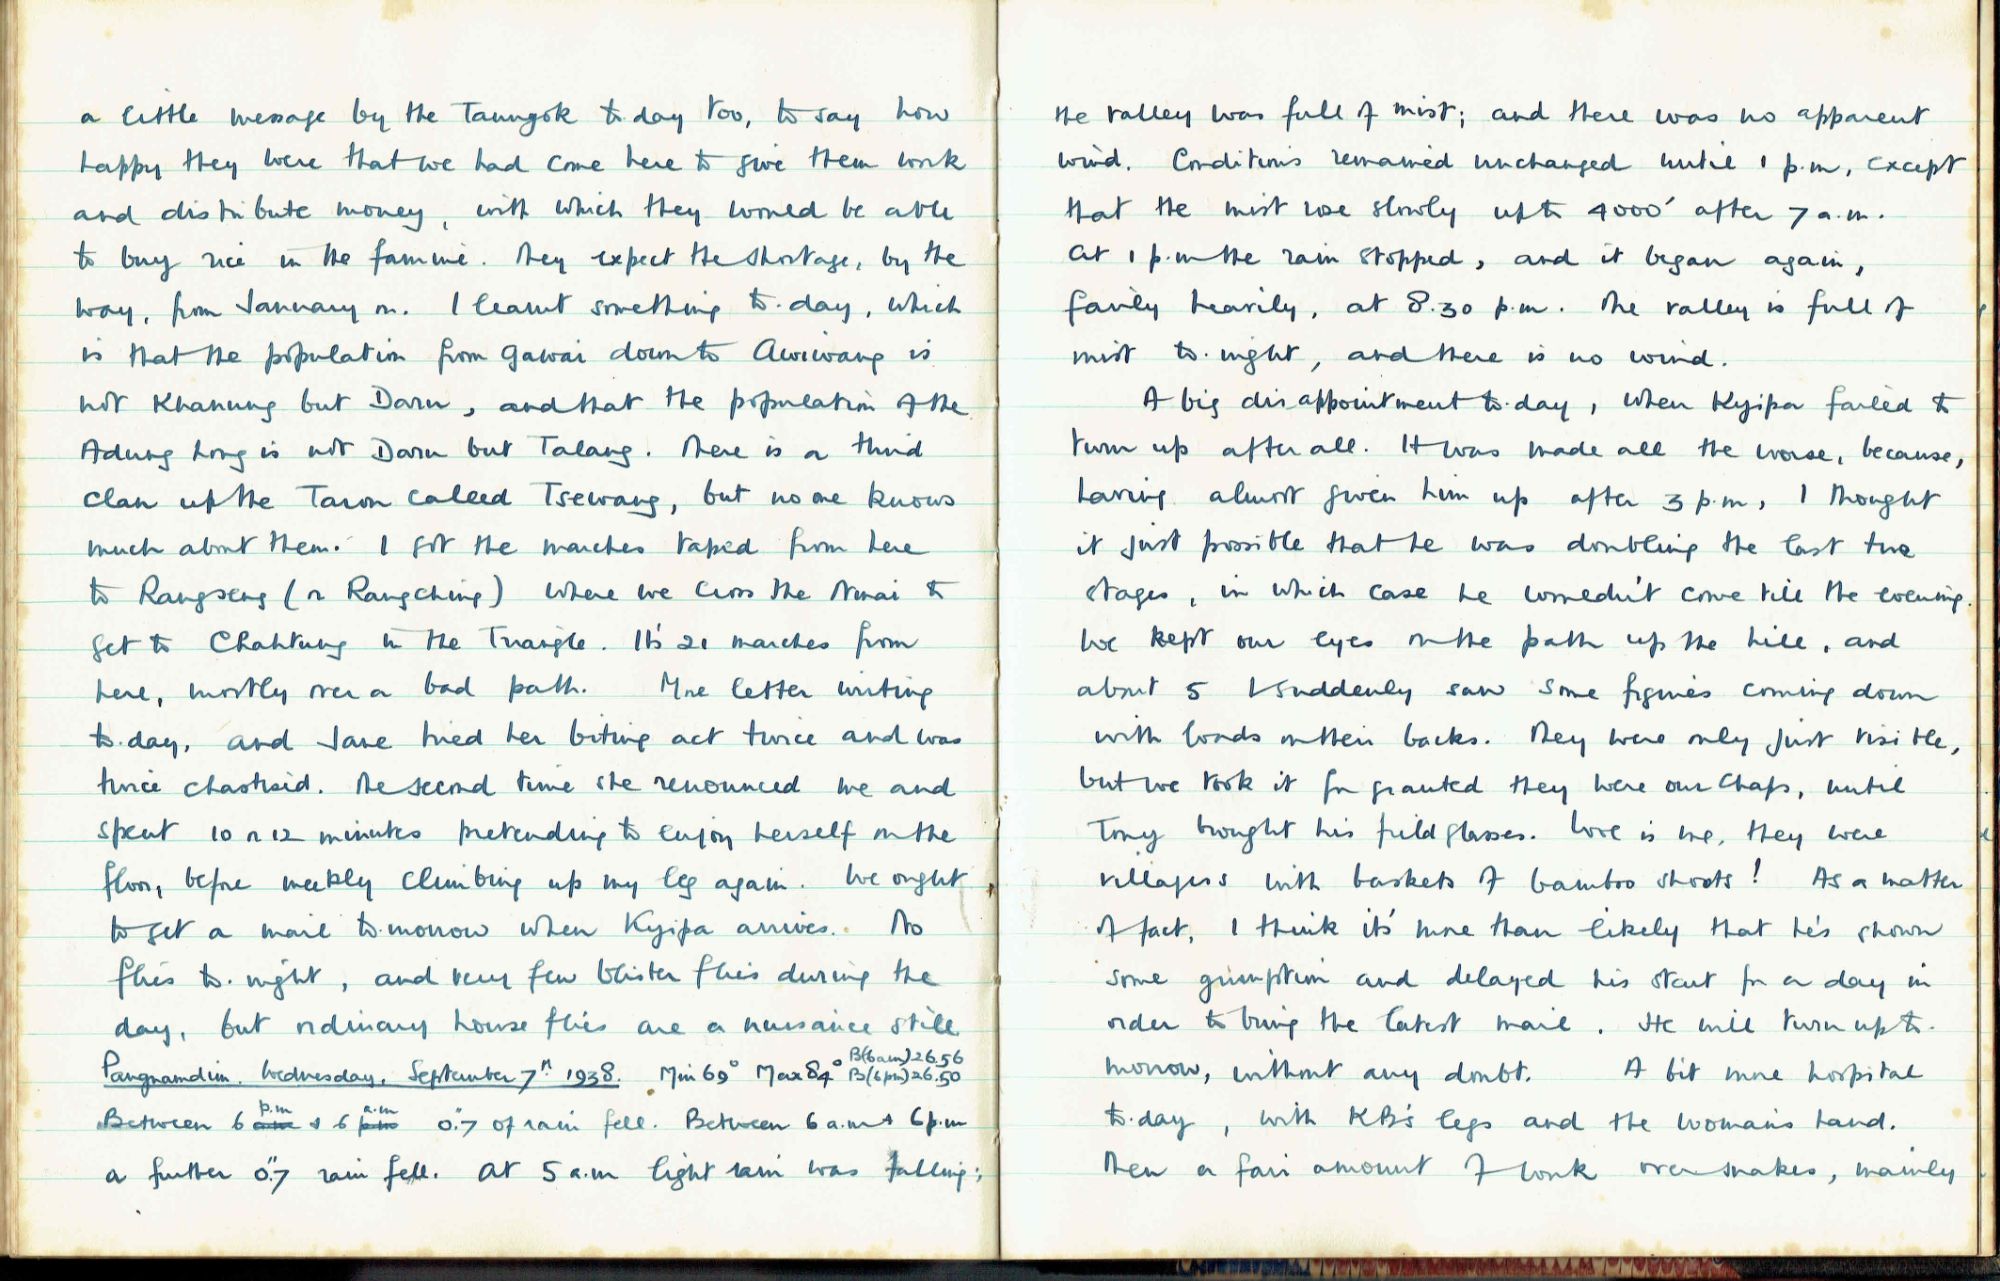 a little message by the Taungok to-day too, to say how
happy they were that we had come here to give them work
and distribute money, with which they would be able
to buy rice in the famine. They expect the shortage, by the
way, from January on. I learnt something to-day, which
is that the population from Gawai down to Awiwang is
not Khanung but Daru, and that the population of the
Adung Long is not Daru but Talang. There is a third
clan up the Taron called Tsewang, but no one knows
much about them. I got the marches taped from here
to Rangseng (or Rangching) where we cross the Nmai to
get to Chahtung in the Triangle. It's 21 marches from
here, mostly over a bad path. More letter writing
to-day, and Jane tried her biting act twice and was
twice chastised. The second time she renounced me and
spent 10 or 12 minutes pretending to enjoy herself on the
floor, before meekly climbing up my leg again. We ought
to get a mail to-morrow when Kyipa arrives. No
flies to-night, and very few blister flies during the
day, but ordinary house flies are a nuisance still
Pangnamdim. Wednesday, September 7th 1938. Min 69° Max 84° B(6am) 26.56 B(6pm) 26.50
Between 6 p.m & 6 a.m 0."7 of rain fell. Between 6 a.m & 6 p.m
a further 0."7 rain fell. At 5 a.m light rain was falling;
the valley was full of mist; and there was no apparent
wind. Conditions remained unchanged until 1 p.m, except
that the mist rose slowly up to 4000' after 7 a.m.
At 1 p.m the rain stopped, and it began again,
fairly heavily, at 8.30 p.m. The valley is full of
mist to-night, and there is no wind.
A big disappointment to-day, when Kyipa failed to
turn up after all. It was made all the worse, because,
having almost given him up after 3 p.m, I thought
it just possible that he was doubling the last two
stages, in which case he wouldn't come till the evening.
We kept our eyes on the path up the hill, and
about 5 I suddenly saw some figures coming down
with loads on their backs. They were only just visible,
but we took it for granted they were our chaps, until
Tony brought his field glasses. Love is me, they were
villagers with baskets of bamboo shoots! As a matter
of fact, I think it's more than likely that he's shown
some gumption and delayed his start for a day in
order to bring the latest mail. He will turn up to-
morrow, without any doubt. A bit more hospital
to-day, with KB's legs and the woman's hand.
Then a fair amount of work over snakes, mainly